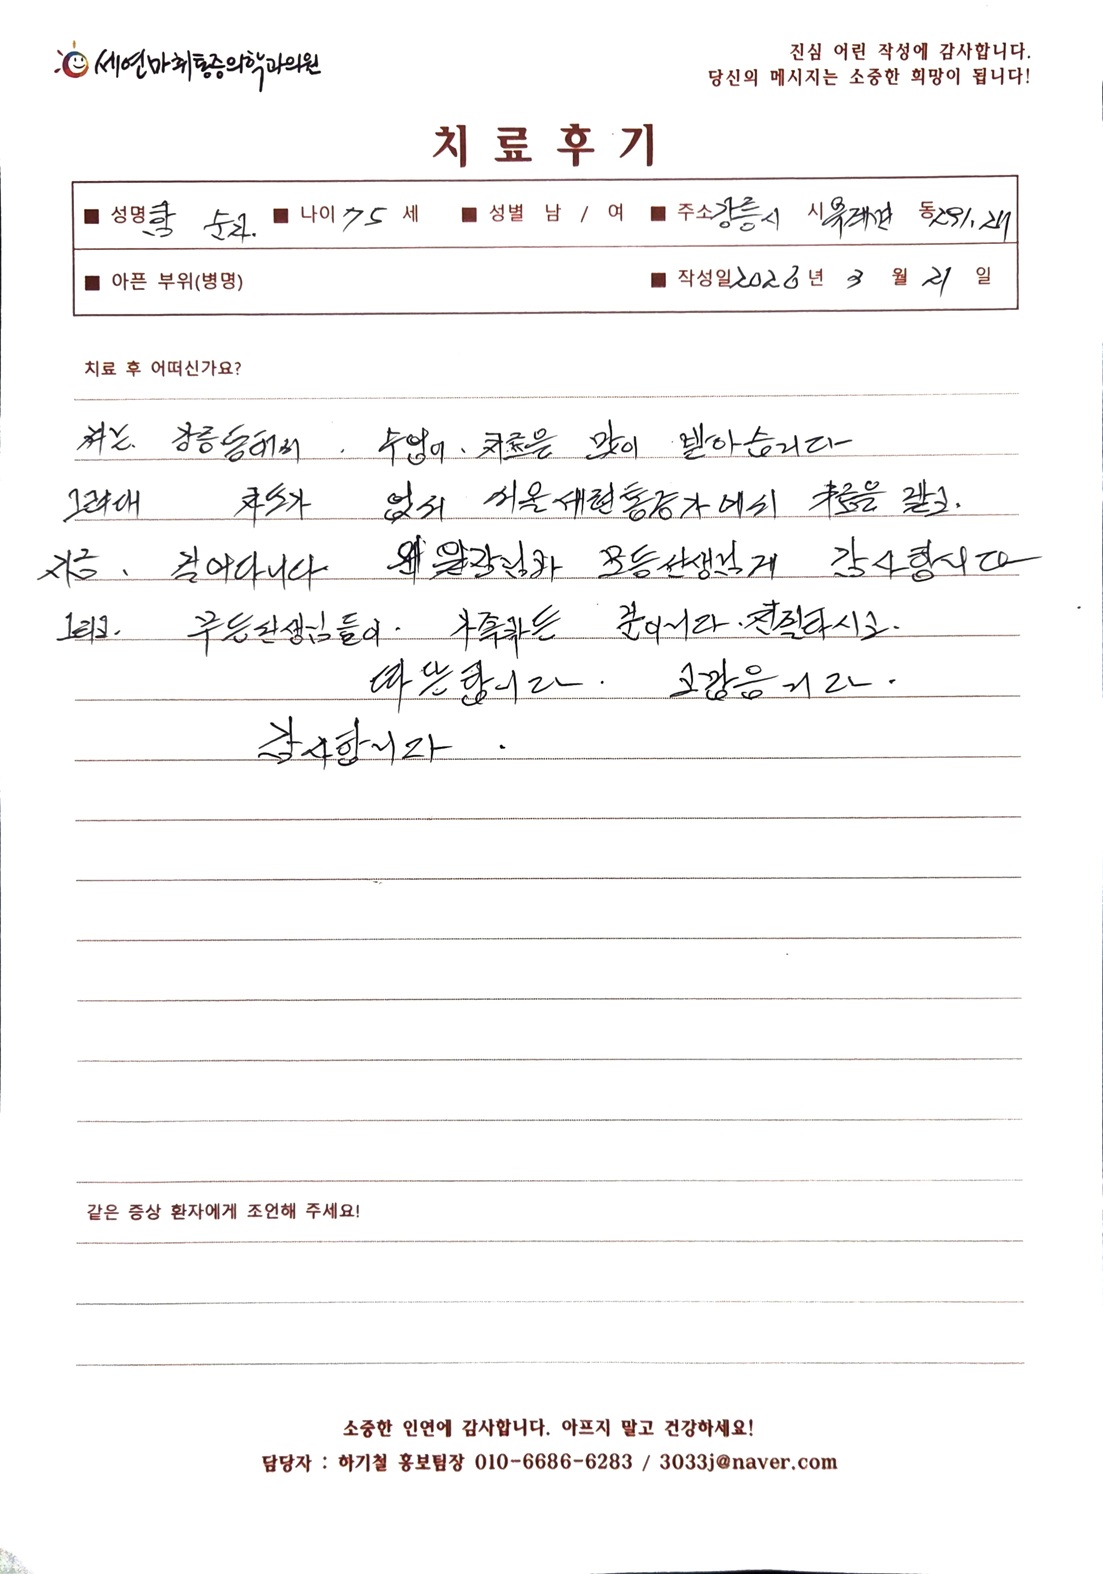 세연마취통증의학과의원
진심 어린 작성에 감사합니다.
당신의 메시지는 소중한 희망이 됩니다!
치료후기
■ 성명 순 ■ 나이 75 세 ■ 성별 남 / 여 ■ 주소 강릉시 시 동 291.
■ 아픈 부위(병명) ■ 작성일 2026 년 3 월 21 일
치료 후 어떠신가요?
저는. 수업이. 치료은 많이 받아습니다
그런대 차도가 없서 서울세현통증가에서 치료을 받고.
지금. 걸어다니다 모든선생님게 감사합니다
그리고. 모든선생님들이. 가족과는 분이니다. 친절다시고.
따뜻합니다. 고맙음니다.
감사합니다.
같은 증상 환자에게 조언해 주세요!
소중한 인연에 감사합니다. 아프지 말고 건강하세요!
담당자 : 하기철 홍보팀장 010-6686-6283 / 3033j@naver.com